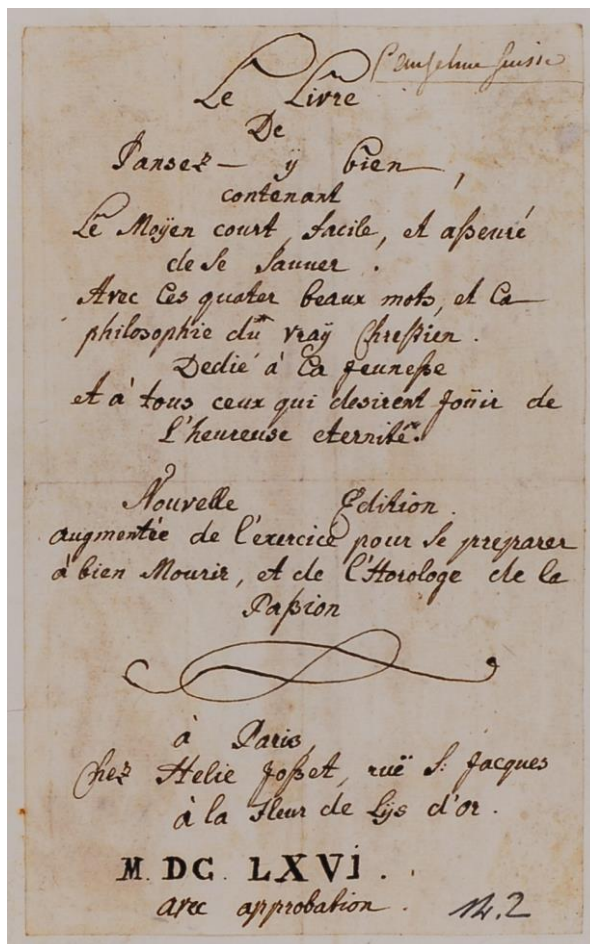 Le Livre
De
Pansez-ÿ bien,
contenant
Le Moÿen court, facile, et aßeuré
de se Sauuer.
Avec Ces quater beaux mots, et La
philosophie du vraÿ Chreßien.
Dedié à La Jeuneße
et à tous ceux qui desirent Joüir de
L'heureuse eternité.
Nouvelle Edition.
augmentée de l'exercice pour se preparer
à bien Mourir, et de l'Horologe de la
Paßion
à Paris,
Chez Helie Joßet, ruë S: Jacques
à la Fleur de Lÿs d'or.
M. DC. LXVI.
avec approbation.
14.2